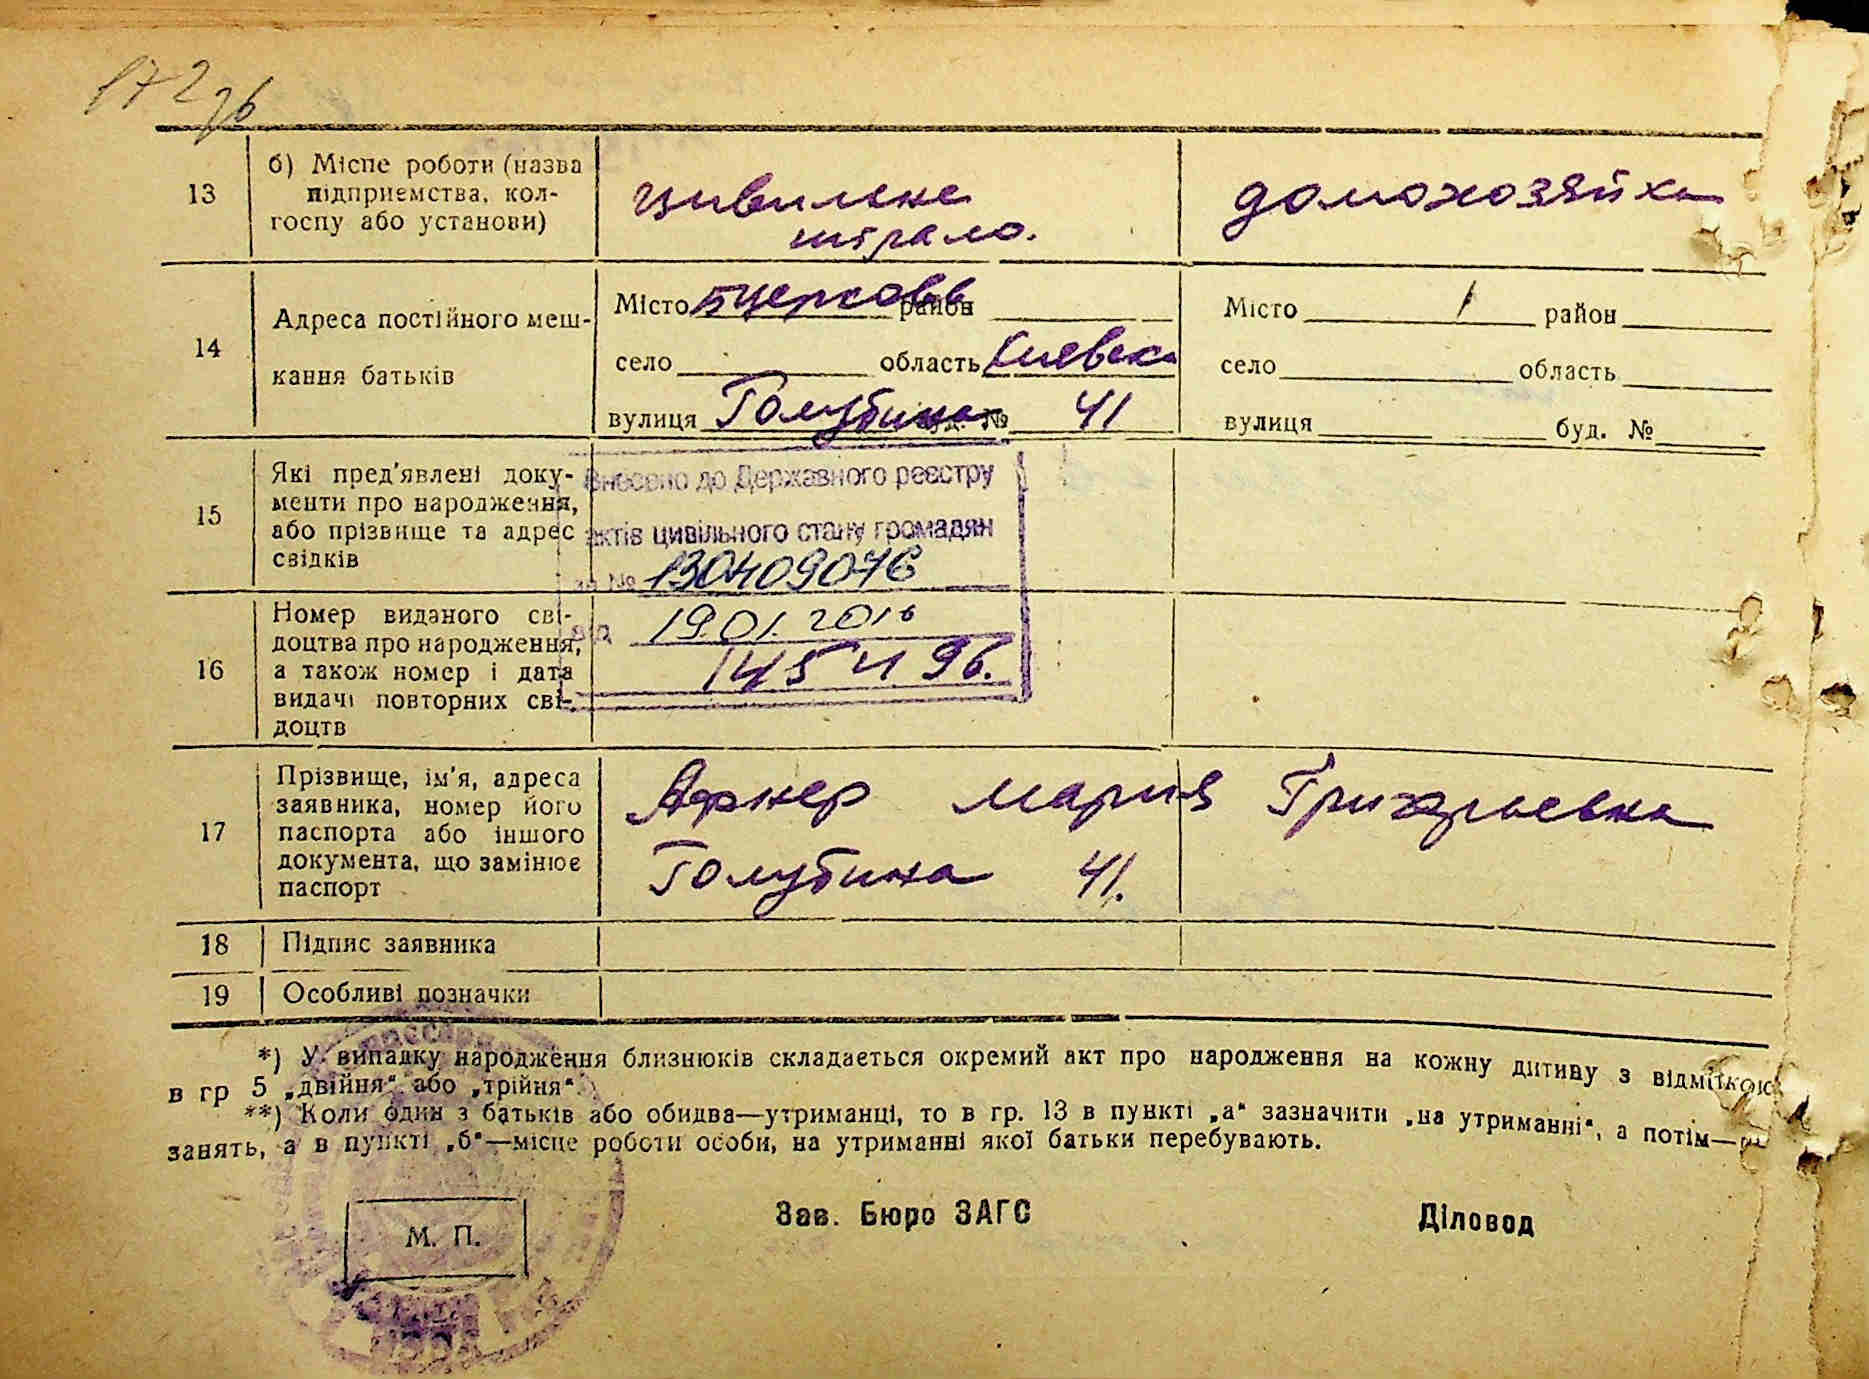 172 зв
13
б) Місце роботи (назва
підприємства, кол-
госпу або установи)
домохозяйка
14
Адреса постійного меш-
кання батьків
Місто Бцерковь район
село область Киевска
вулиця Голубина буд. № 41
Місто район
село область
вулиця буд. №
15
Які пред'явлені доку-
менти про народження,
або прізвище та адрес
свідків
Внесено до Державного реєстру
актів цивільного стану громадян
за № 130409076
від 19.01.2016
16
Номер виданого сві-
доцтва про народження,
а також номер і дата
видачі повторних сві-
доцтв
17
Прізвище, ім'я, адреса
заявника, номер його
паспорта або іншого
документа, що замінює
паспорт
Мария Григорьевна
Голубина 41.
18
Підпис заявника
19
Особливі позначки
*) У випадку народження близнюків складається окремий акт про народження на кожну дитину з відміткою
в гр 5 „двійня“ або „трійня“.
**) Коли один з батьків або обидва—утриманці, то в гр. 13 в пункті „а“ зазначити „на утриманні“, а потім—
занять, а в пункті „б“—місце роботи особи, на утриманні якої батьки перебувають.
М. П.
Зав. Бюро ЗАГС
Діловод